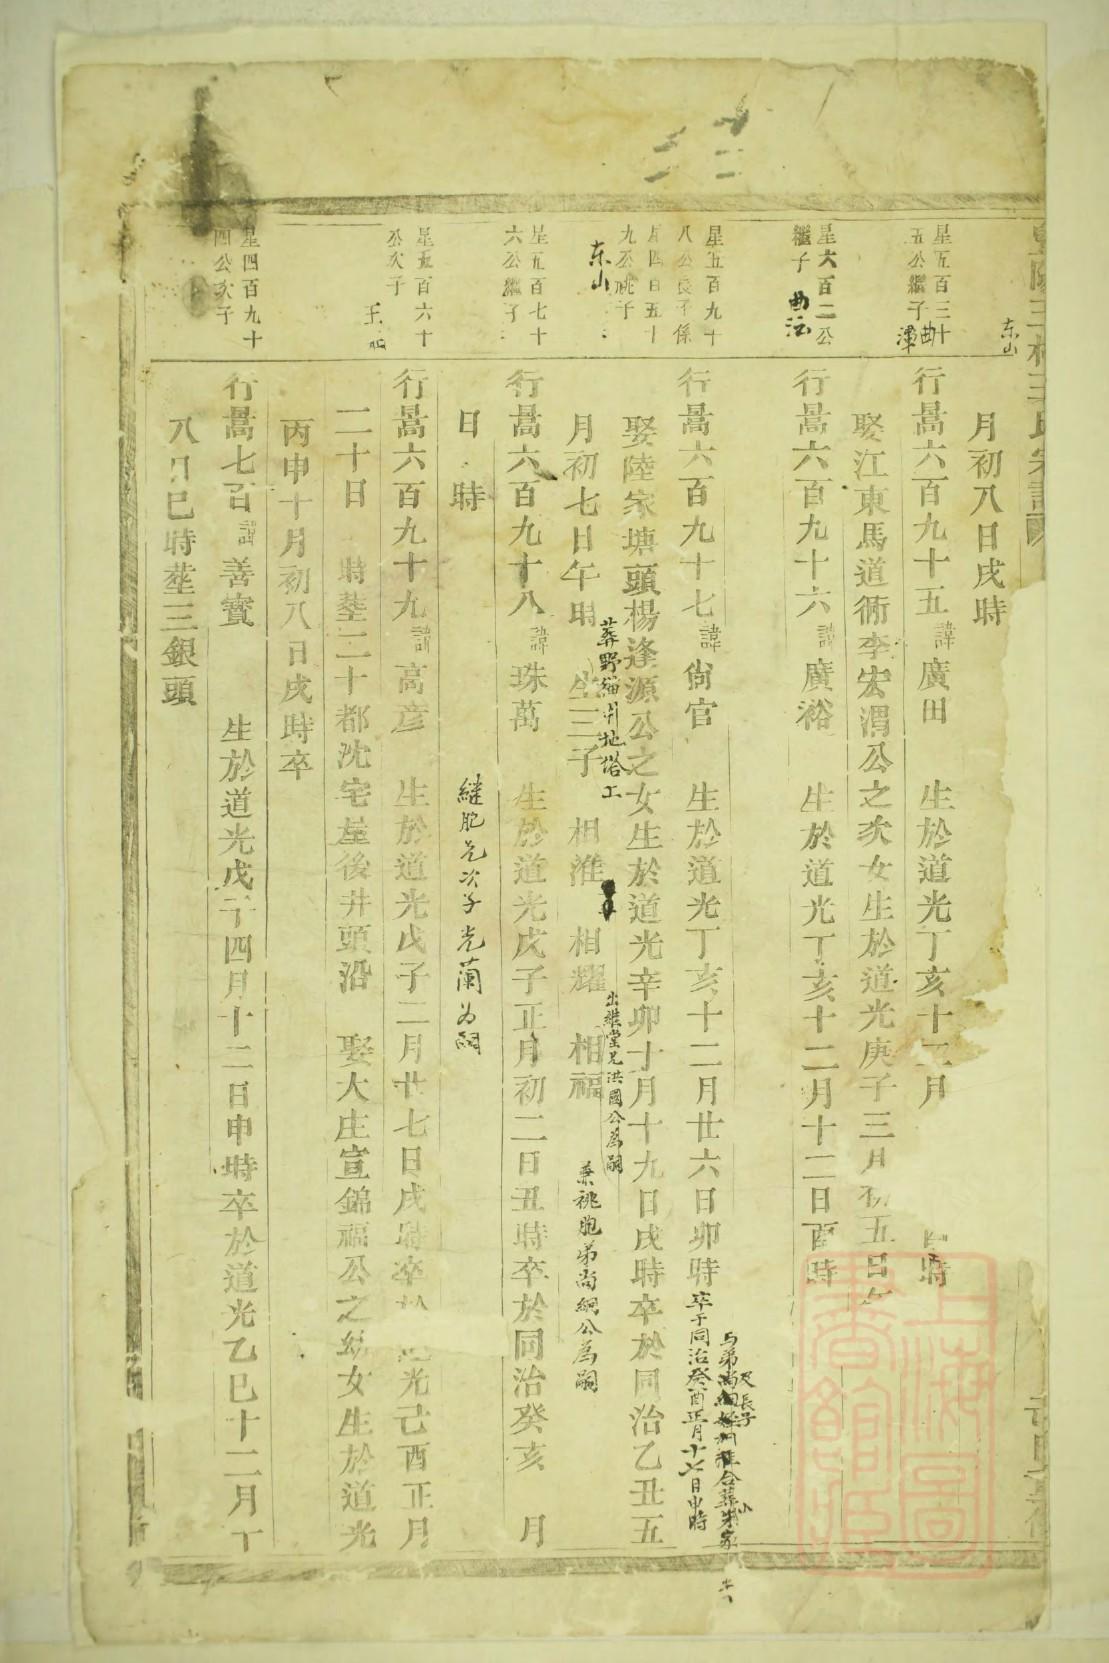 东山
月初八日戌時
星五百三十
五公繼子
曲
潭
行暠六百九十五
諱
廣田
生於道光丁亥十二月
時
娶江東馬道衕李宏渭公之次女生於道光庚子三月初五日
星六百二公
繼子
曲江
行暠六百九十六
諱
廣裕
生於道光丁亥十二月十二日酉時
星五百九十
八公
行暠六百九十七
諱
尙官
生於道光丁亥十二月廿六日卯時
卒于同治癸酉正月十七日申時
娶陸家塘頭楊逢源公之女生於道光辛卯十月十九日戌時卒於同治乙丑五
月初七日午時
生三子
相淮
相耀
相福
出繼堂兄洪國公為嗣
兼祧胞弟尚綱公為嗣
东山
星五百七十
六公繼子
行暠六百九十八
諱
珠萬
生於道光戊子正月初二日丑時卒於同治癸亥
月
日
時
繼胞兄次子光蘭为嗣
星五百六十
公次子
行暠六百九十九
諱
高彦
生於道光戊子二月廿七日戌時卒
光己酉正月
二十日
時塟二十都沈宅屋後井頭沿
娶大庄宣錦福公之幼女生於道光
丙申十月初八日戌時卒
星四百九十
四公次子
行暠七百
諱
善寳
生於道光戊子四月十二日申時卒於道光乙巳十二月丁
八日巳時塟三銀頭
上海圖
書館藏